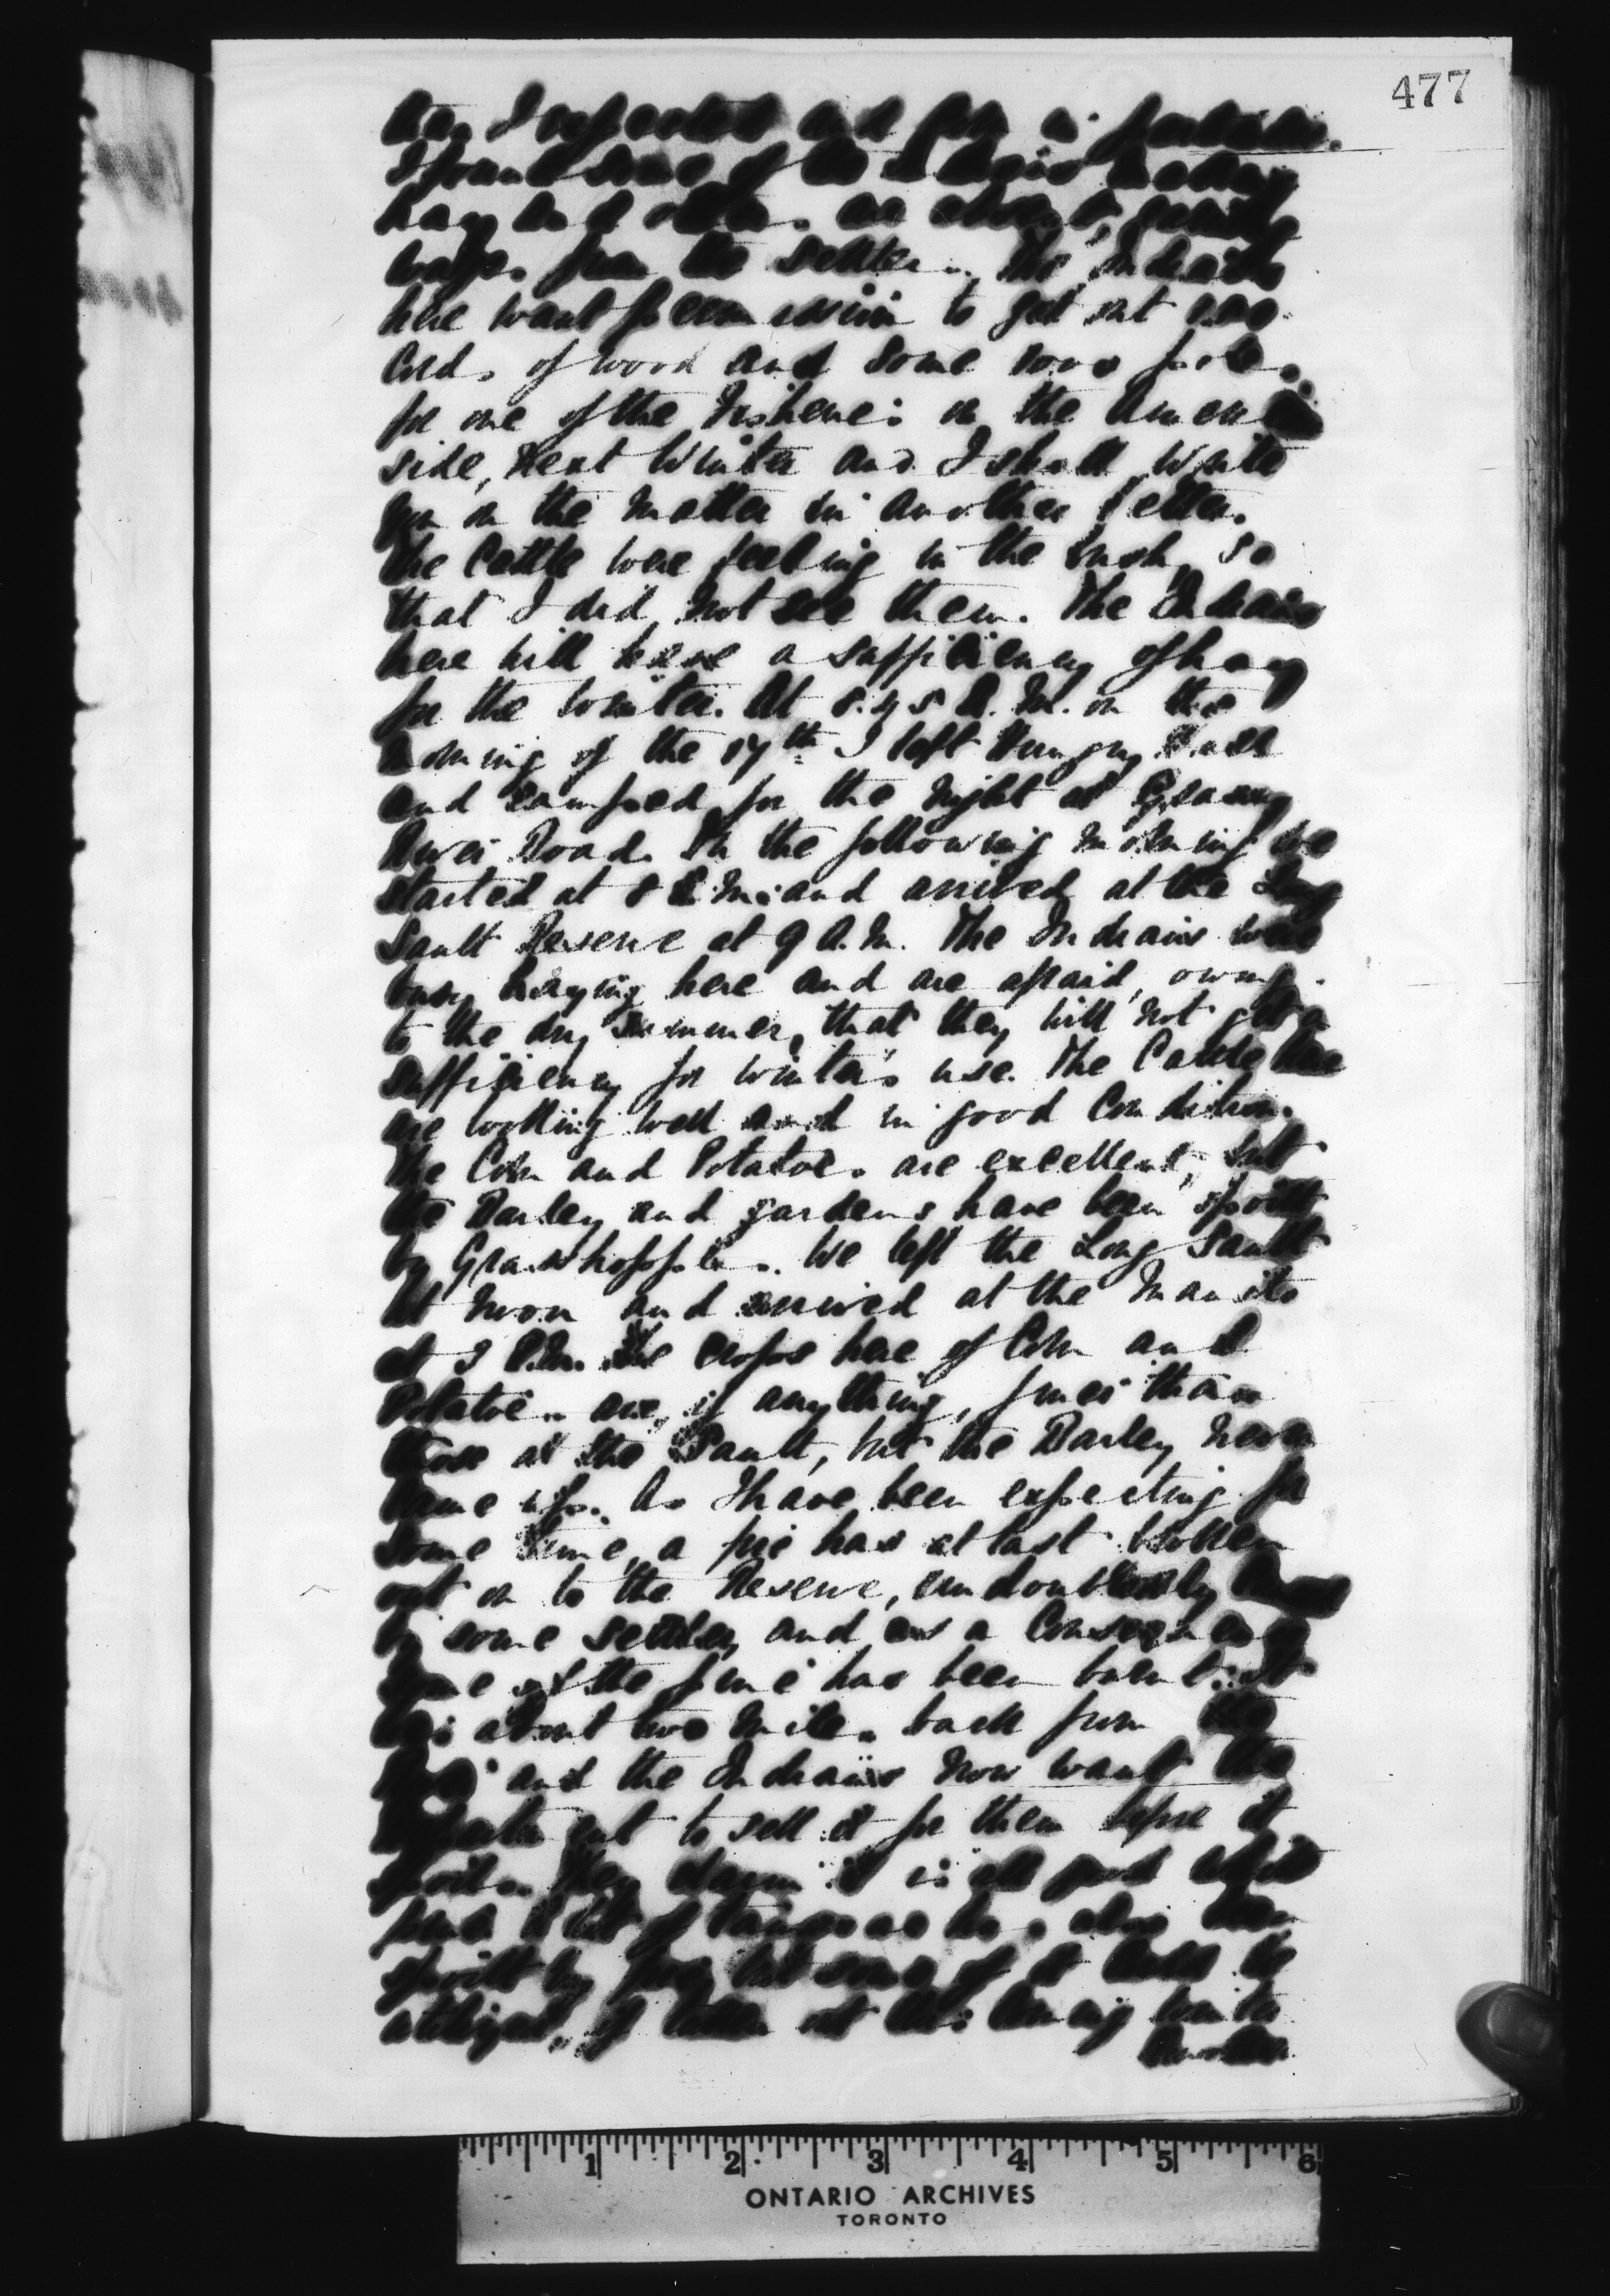 477
I expected and
I found some of the Indians making
hay and
from the The Indians
here want permission to get out
Cords of wood and some
for one of the on the
side, next Winter and I shall write
you on the matter in another letter.
The Cattle were feeding in the bush, so
that I did not see them. The Indians
here will have a sufficiency of hay
for the Winter. At A.M. on the
morning of the 17th I left Hungry Hall
and camped for the night at Grassy
River Road. On the following morning we
started at 8 A.M. and arrived at the Long
Sault Reserve at 9 A.M. The Indians were
busy haying here and are afraid, owing
to the dry summer, that they will not get a
sufficiency for winter's use. The Cattle here
are looking well and in good Condition.
The Corn and Potatoes are excellent, but
the Barley and gardens have been spoilt
by Grasshoppers. We left the Long Sault
at noon and arrived at the Manito
at 3 P.M. The crops here of Corn and
Potatoes are, if anything, finer than
those at the Sault, but the Barley never
came up. As I have been expecting for
some time, a fire has at last broken
out on to the Reserve, undoubtedly
by some settler, and as a Consequence
some of the pine has been burnt. It
is about two miles back from the
and the Indians now want the
Department to sell it for them before it
spoils. They claim it is all good
pine. A lot of Tamarac has also been
spoilt by fire, but some of it could be
utilized, if taken out this coming winter